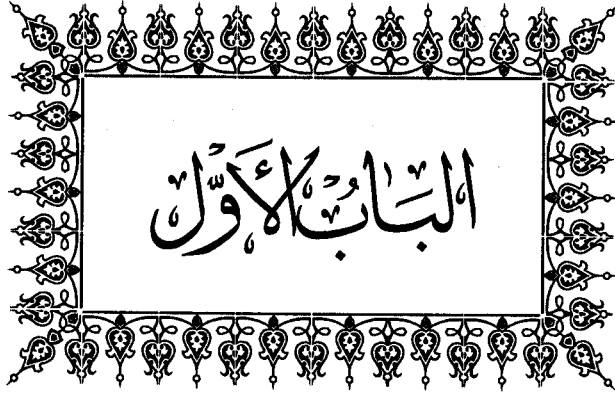 البَابُ الأَوَّل